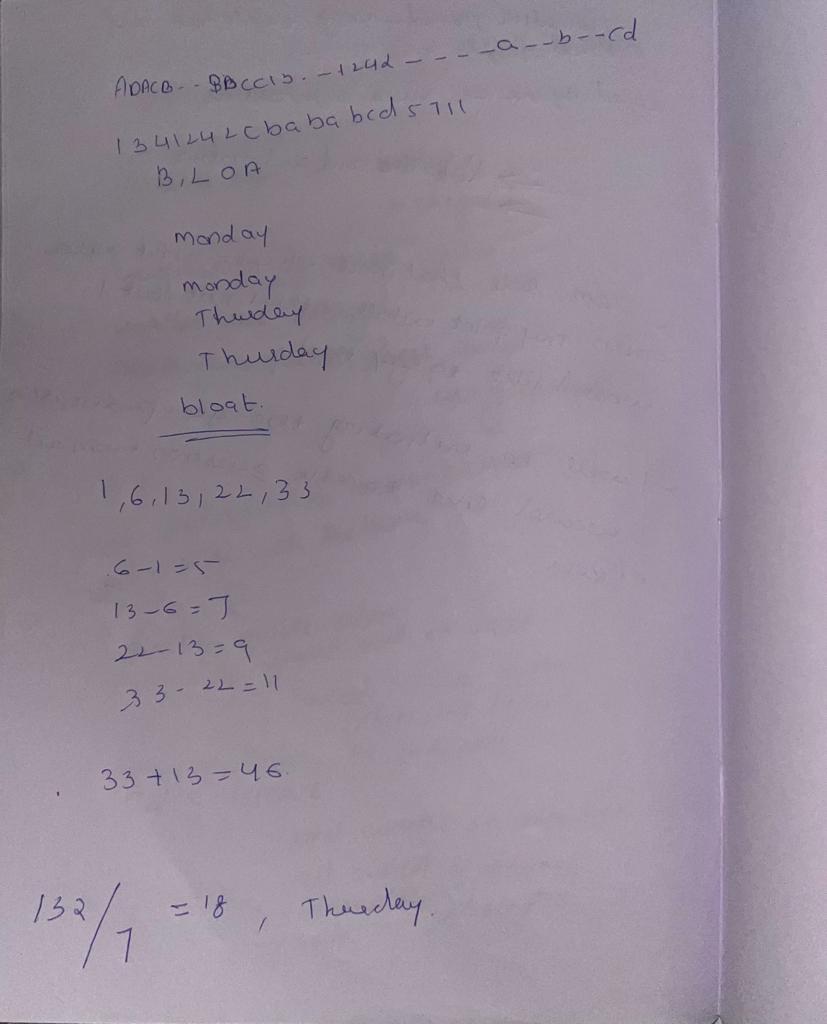 ADACB-- BBCC13. -124d - - - -a--b--cd
1341242cbababcd5711
B, L O A
monday
monday
Thursday
Thursday
bloat.
1,6,13,22,33
6-1=5
13-6=7
22-13=9
33-22=11
33+13=46.
132/7 =18, Thursday.